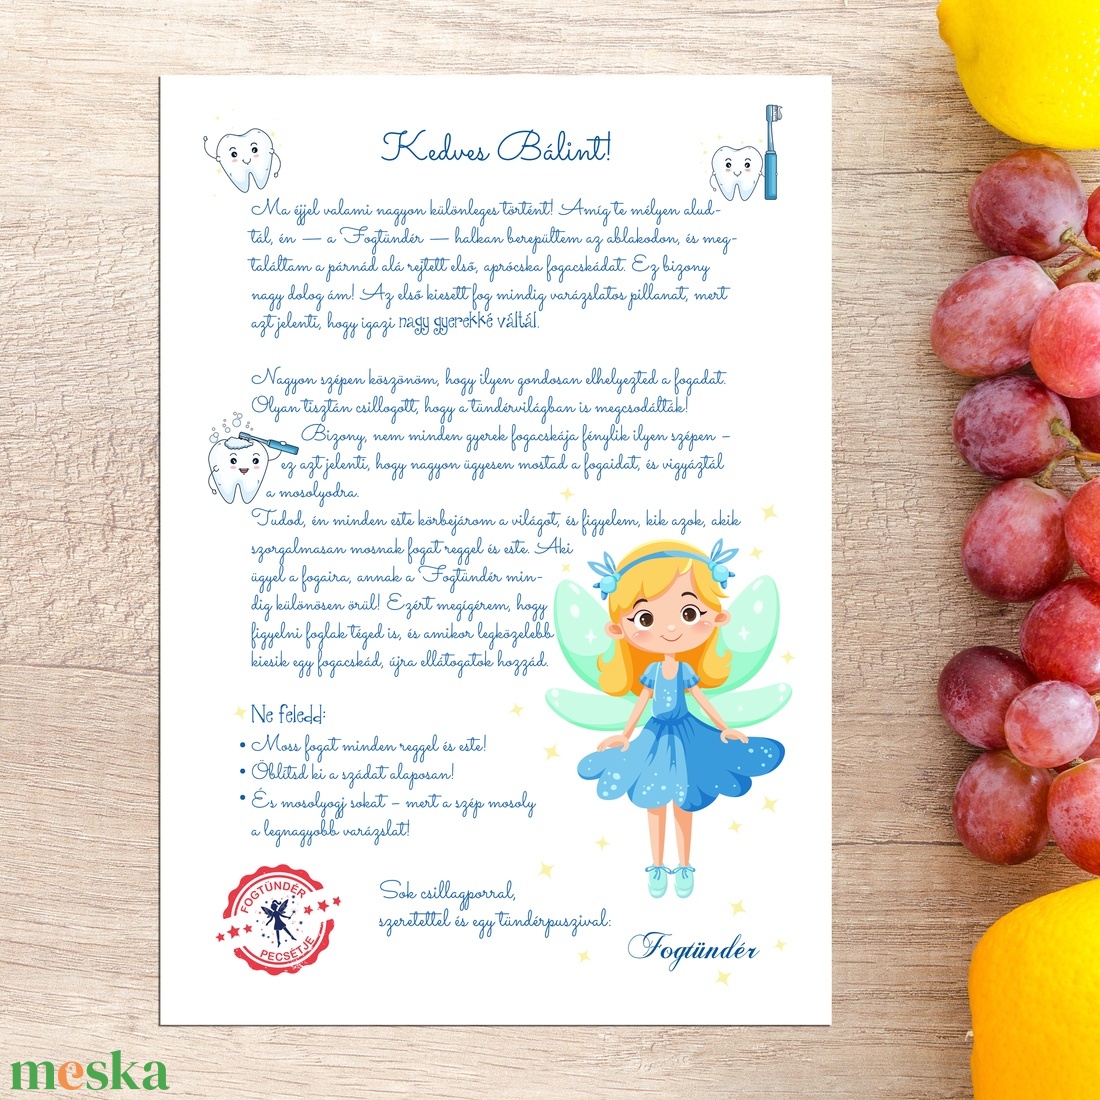 Kedves Bálint!
Ma éjjel valami nagyon különleges történt! Amíg te mélyen alud-
tál, én — a Fogtündér — halkan berepültem az ablakodon, és meg-
találtam a párnád alá rejtett első, aprócska fogacskádat. Ez bizony
nagy dolog ám! Az első kiesett fog mindig varázslatos pillanat, mert
azt jelenti, hogy igazi nagy gyerekké váltál.
Nagyon szépen köszönöm, hogy ilyen gondosan elhelyezted a fogadat.
Olyan tisztán csillogott, hogy a tündérvilágban is megcsodálták!
Bizony, nem minden gyerek fogacskája fénylik ilyen szépen –
ez azt jelenti, hogy nagyon ügyesen mostad a fogaidat, és vigyáztál
a mosolyodra.
Tudod, én minden este körbejárom a világot, és figyelem, kik azok, akik
szorgalmasan mosnak fogat reggel és este. Aki
ügyel a fogaira, annak a Fogtündér min-
dig különösen örül! Ezért megígérem, hogy
figyelni foglak téged is, és amikor legközelebb
kiesik egy fogacskád, újra ellátogatok hozzád.
Ne feledd:
• Moss fogat minden reggel és este!
• Öblítsd ki a szádat alaposan!
• És mosolyogj sokat – mert a szép mosoly
a legnagyobb varázslat!
FOGTÜNDÉR
PECSÉTJE
Sok csillagporral,
szeretettel és egy tündérpuszival:
Fogtündér
meska